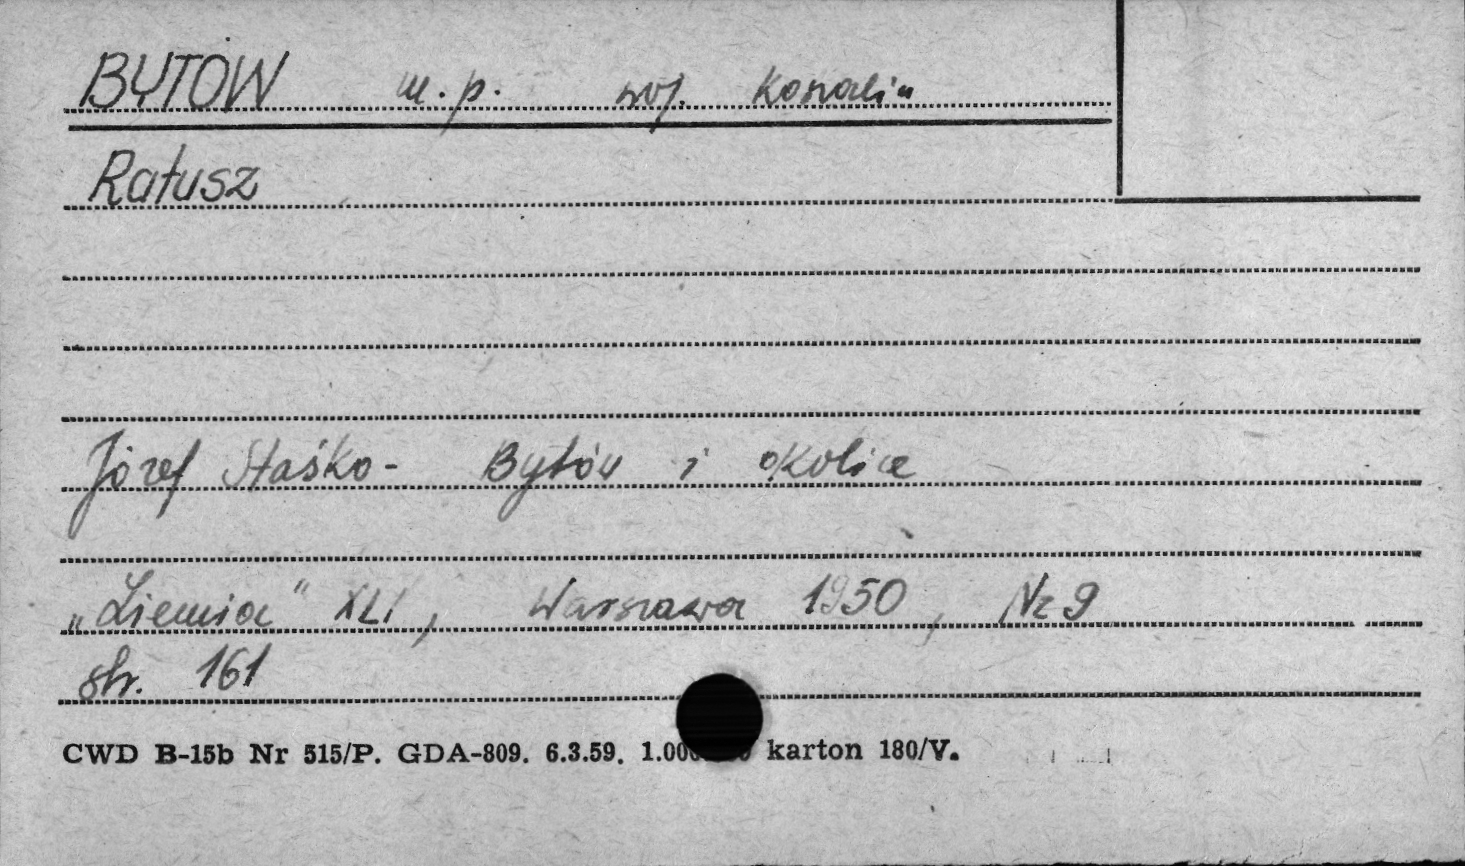 BYTÓW m.p. woj. Koszalin
Ratusz
Józef Staśko - Bytów i okolice
„Ziemia" XLI, Warszawa 1950, Nr 9
str. 161
CWD B-15b Nr 515/P. GDA-809. 6.3.59. karton 180/V.